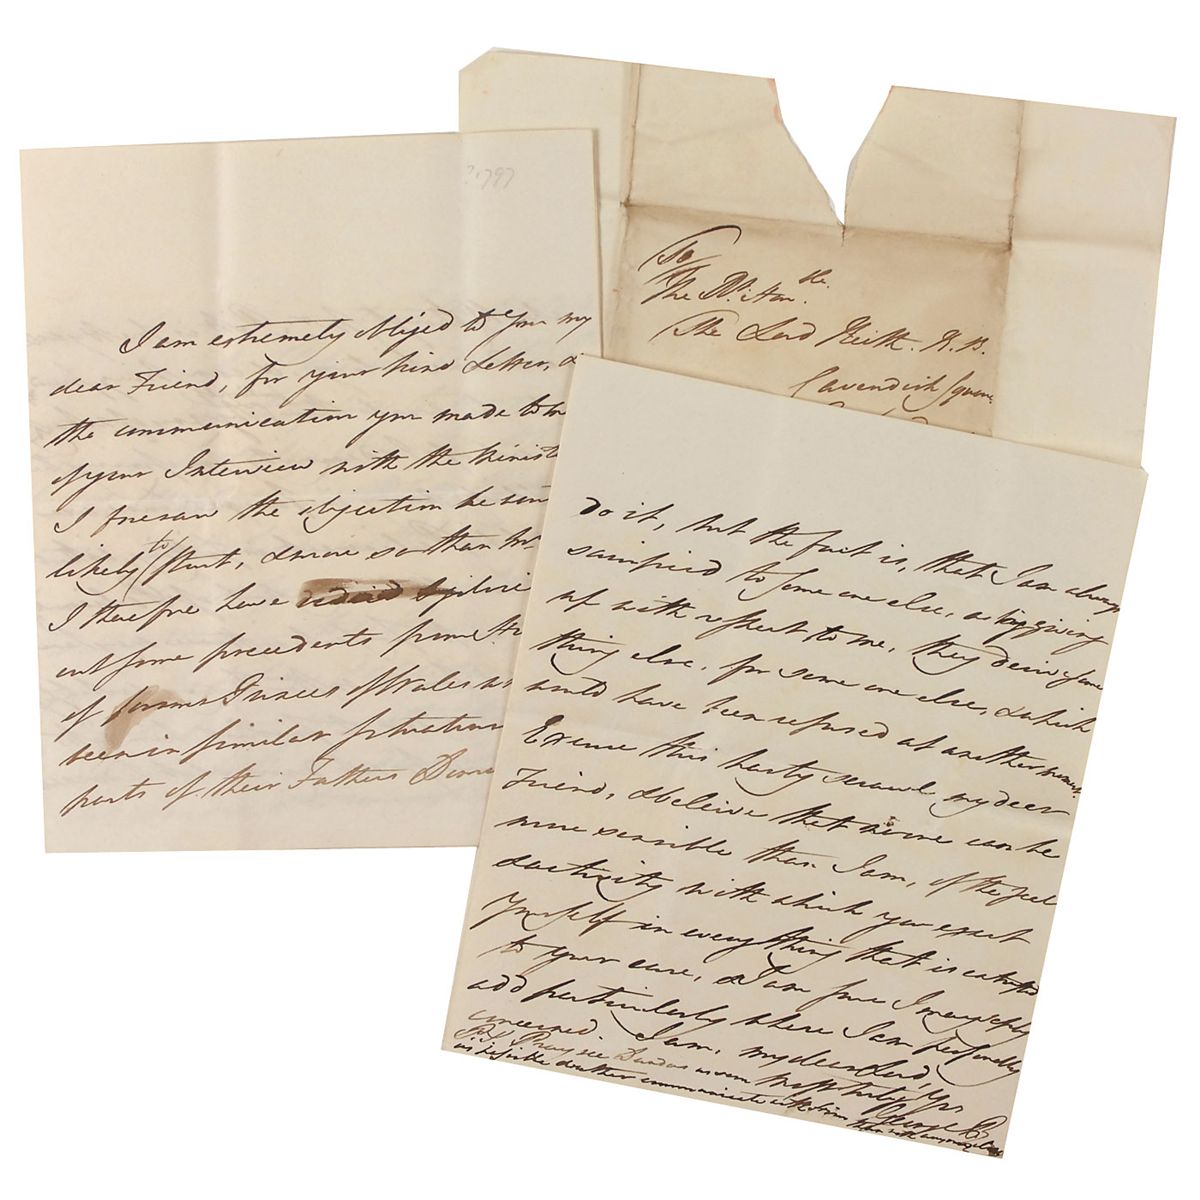 ? 1797
I am extremely obliged to You my
dear Friend, for your kind Letter, &
the communication you made to
of your Interview with the
I foresaw the objection he
likely to start, & more so than
I therefore have
out some precedents from
of former Princes of Wales
been in similar situations
parts of their Fathers
To
The Rt. Hon.ble
The Lord Keith. K. B.
Cavendish Square
do it, but the fact is, that I am always
sacrificed to some one else, as by giving
up with respect to me, they desire some
thing else, for some one else, & which
would have been refused at another moment.
Excuse this hasty scrawl, my dear
Friend, & beleive that no one can be
more sensible than I am, of the zeal
& activity with which you exert
Yourself in everything that is entrusted
to your care, & I am sure I may reply
add particularly where I am personally
concerned. I am, my dear Lord,
most truly Yrs
George P.
P.S. Pray see Dundas as soon
as possible & rather communicate with him than with any one else